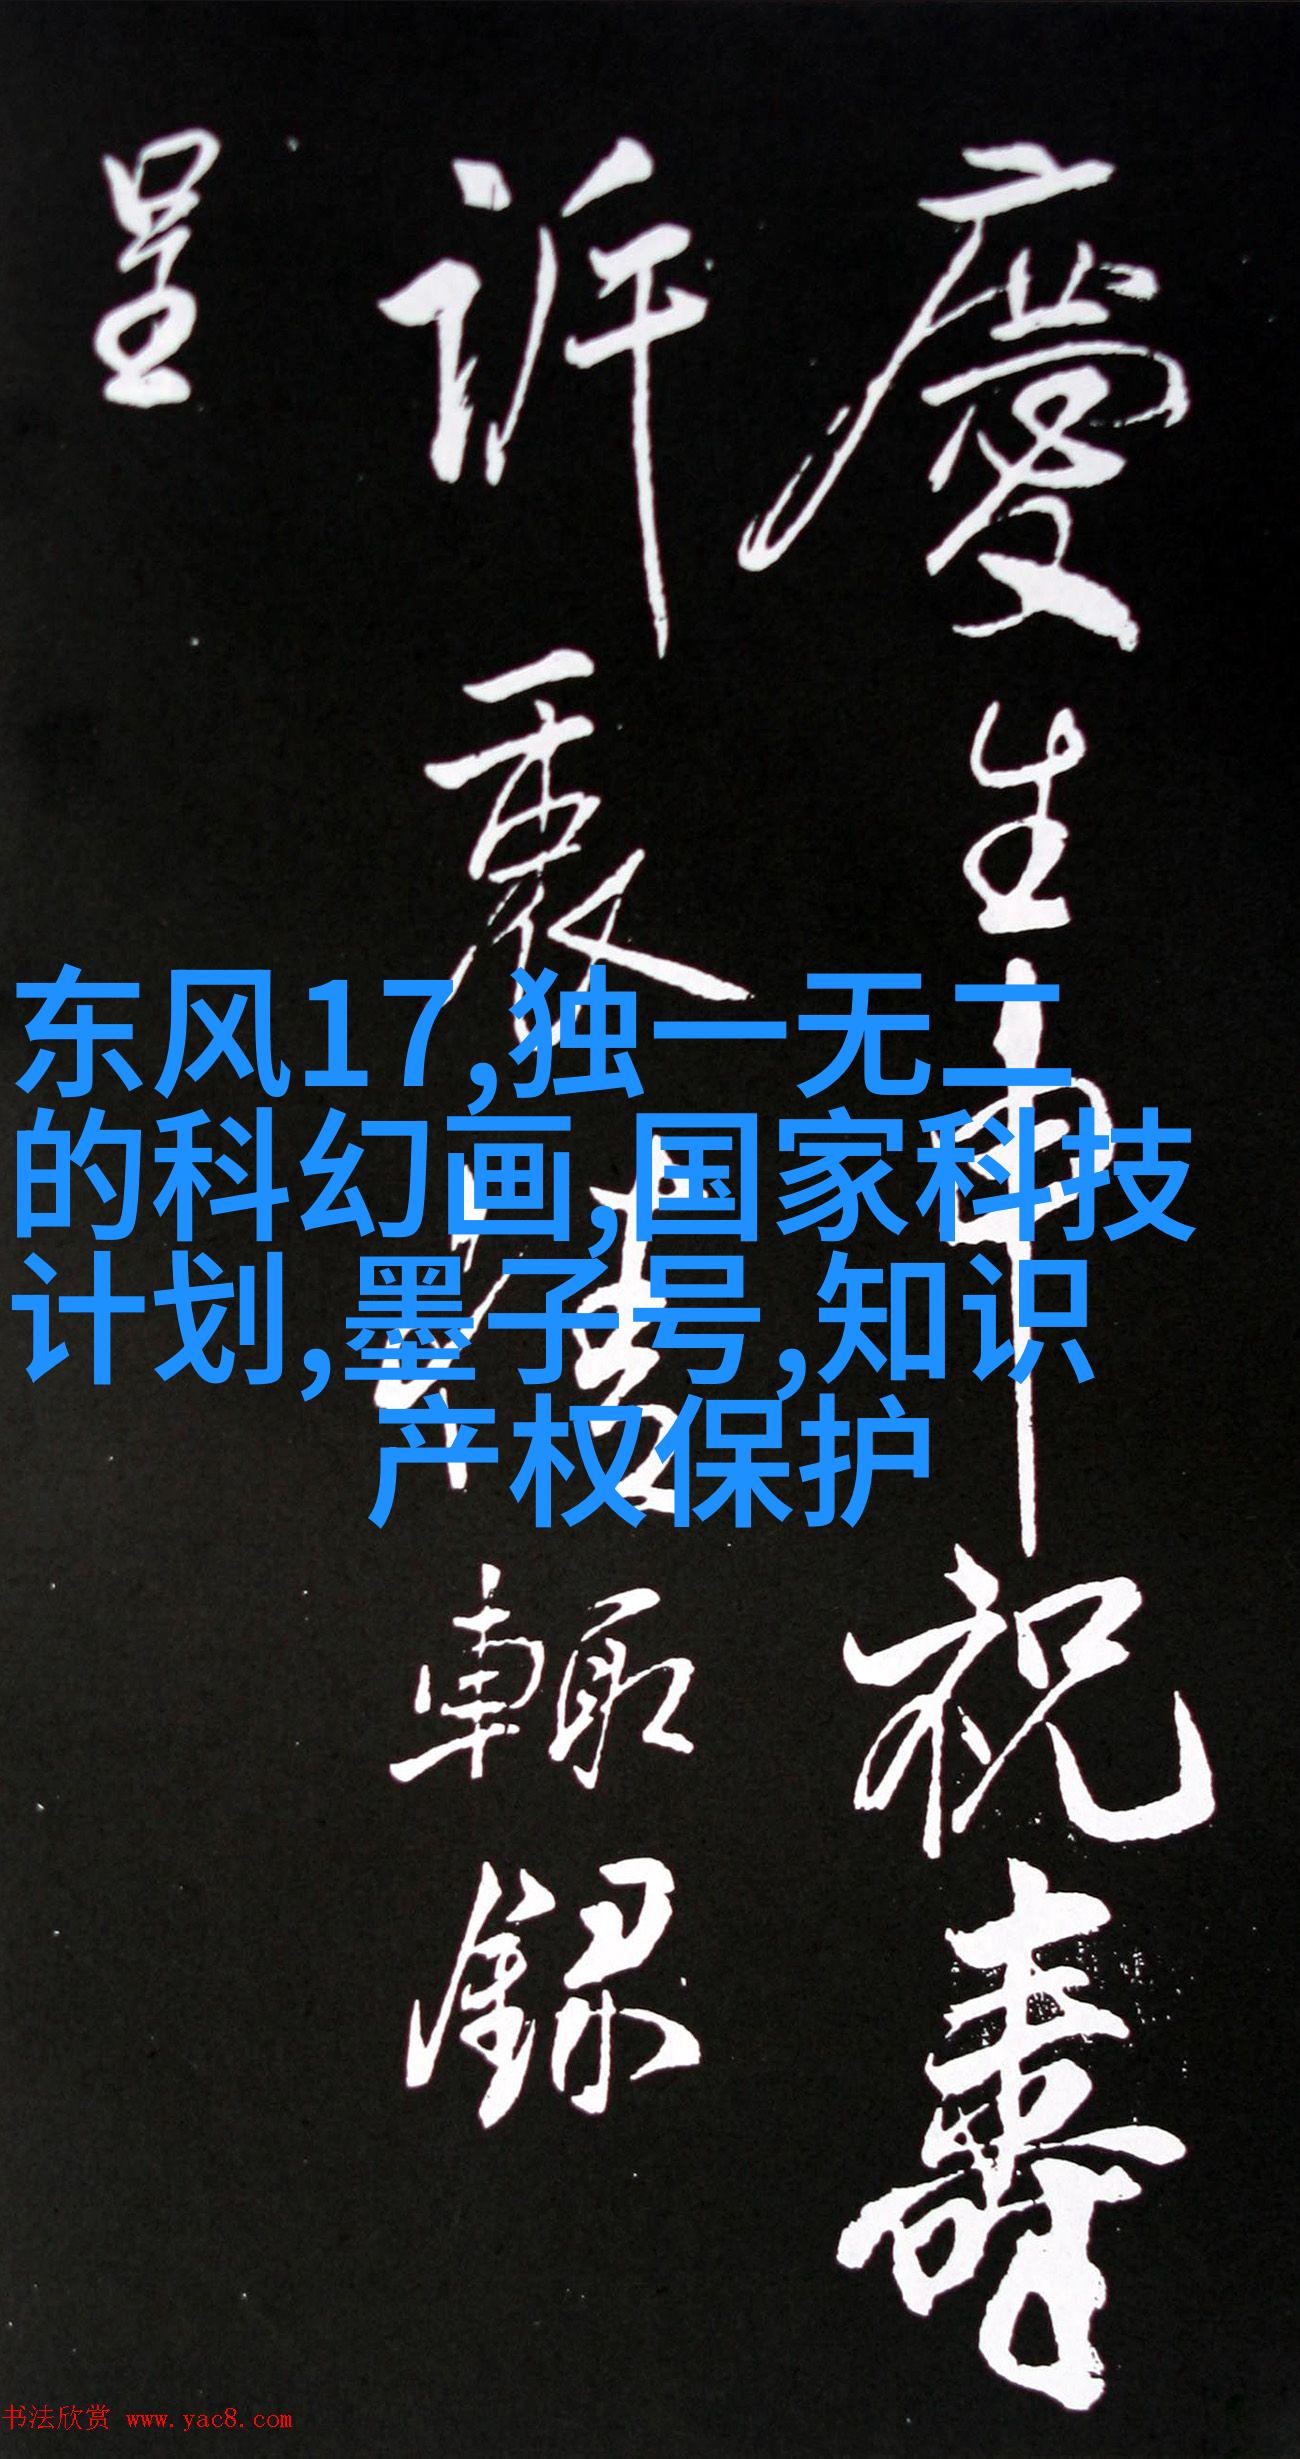 慶生申祝壽
訴衷情輒錄
呈
东风17,独一无二
的科幻画,国家科技
计划,墨子号,知识
产权保护
书法欣赏 www.yac8.com